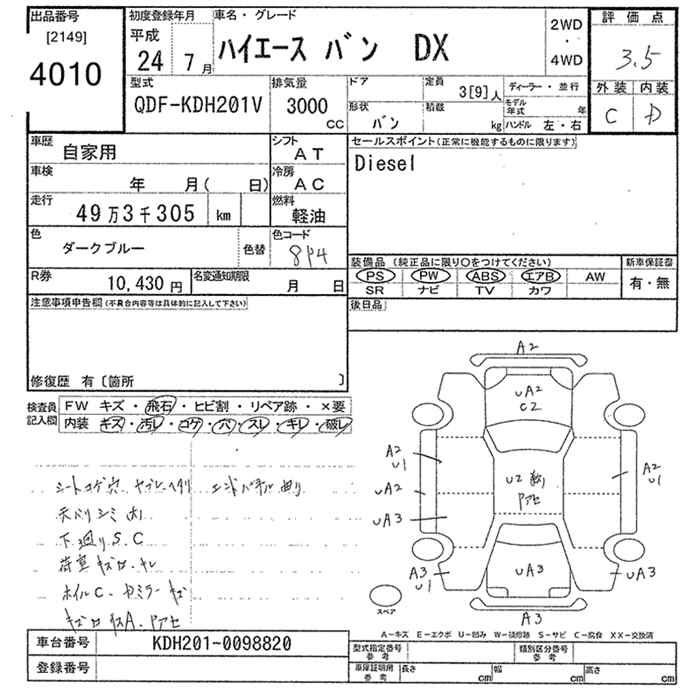 出品番号
[2149]
4010
初度登録年月
平成
24年7月
車名・グレード
ハイエース バン DX
2WD
・
4WD
評価点
3.5
外装 内装
C D
型式
QDF-KDH201V
排気量
3000
CC
ドア
形状
バン
定員
3[9]人
積載
kg
ディーラー・並行
モデル年式 年
ハンドル 左・右
車歴
自家用
シフト
AT
車検
年 月( 日)
冷房
AC
走行
49万3千305 km
燃料
軽油
色
ダークブルー
色替
色コード
8P4
R券
10,430円
名変通知期限
月 日
セールスポイント(正常に機能するものに限ります)
Diesel
装備品 (純正品に限り○をつけてください)
PS PW ABS エアB AW
SR ナビ TV カワ
新車保証書
有・無
後日品
注意事項申告欄(不具合内容等は具体的に記入して下さい)
修復歴 有〔箇所 〕
検査員記入欄
FW キズ・飛石・ヒビ割・リペア跡・×要
内装 キズ・汚レ・コゲ・穴・スレ・キレ・破レ
シートコゲ穴
天バリシミ大
下廻りS.C
荷室キズ
ホイルC.
A2
UA2
C2
A2
U1
UA2
UA3
A3
U1
U2
A2
U1
UA3
UA3
A3
スペア
A−キズ E−エクボ U−凹み W−補修跡 S−サビ C−腐食 XX−交換済
車台番号
KDH201-0098820
登録番号
型式指定番号
参考
類別区分番号
参考
車庫証明用
参考
長さ cm
幅 cm
高さ cm